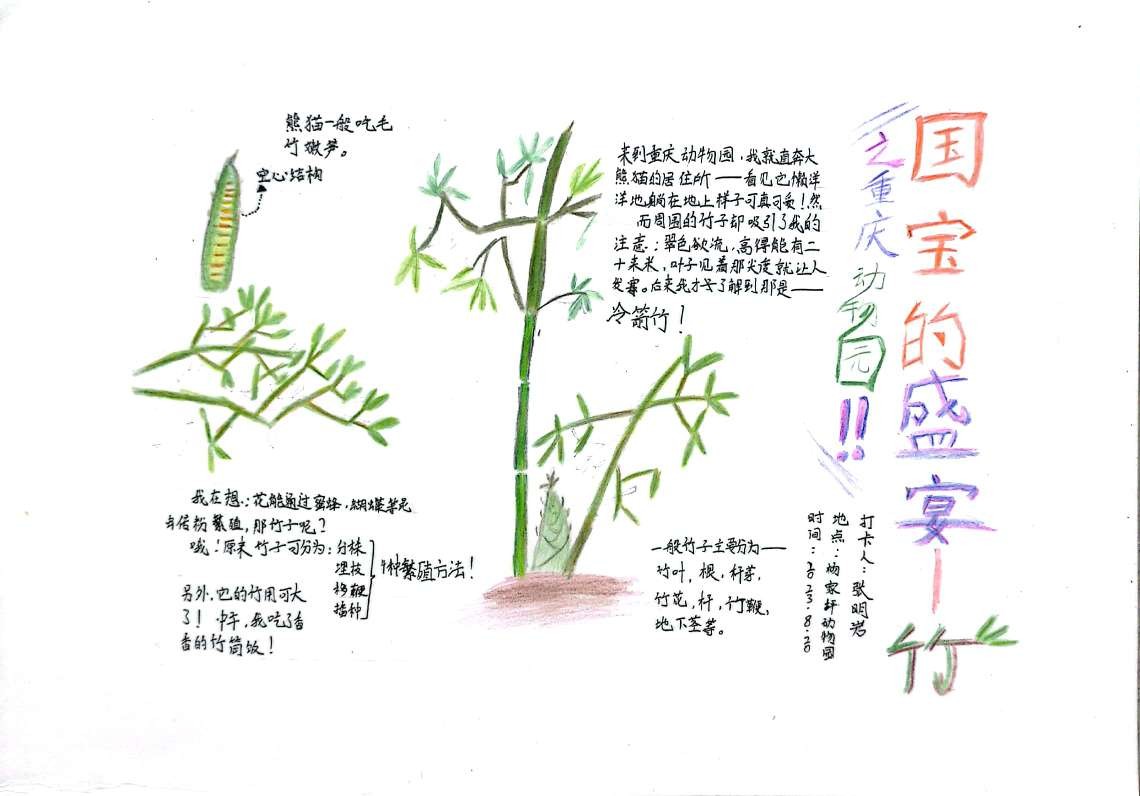 国宝的盛宴—竹
之重庆动物园!!
打卡人：张明岩
地点：杨家坪动物园
时间：2023.8.20
熊猫一般吃毛
竹嫩笋。
空心结构
来到重庆动物园，我就直奔大
熊猫的居住所——看见它懒洋
洋地躺在地上样子可真可爱！然
而周围的竹子却吸引了我的
注意：翠色欲流，高得能有二
十来米，叶子见着那尖度就让人
发寒。后来我才了解到那是——
冷箭竹！
我在想：花能通过蜜蜂，蝴蝶等昆
虫传粉繁殖，那竹子呢？
哦！原来竹子可分为：分株
埋枝
移鞭
播种
4种繁殖方法！
另外，它的竹用可大
了！中午，我吃了香
香的竹筒饭！
一般竹子主要分为——
竹叶，根，杆芽，
竹花，杆，竹鞭，
地下茎等。